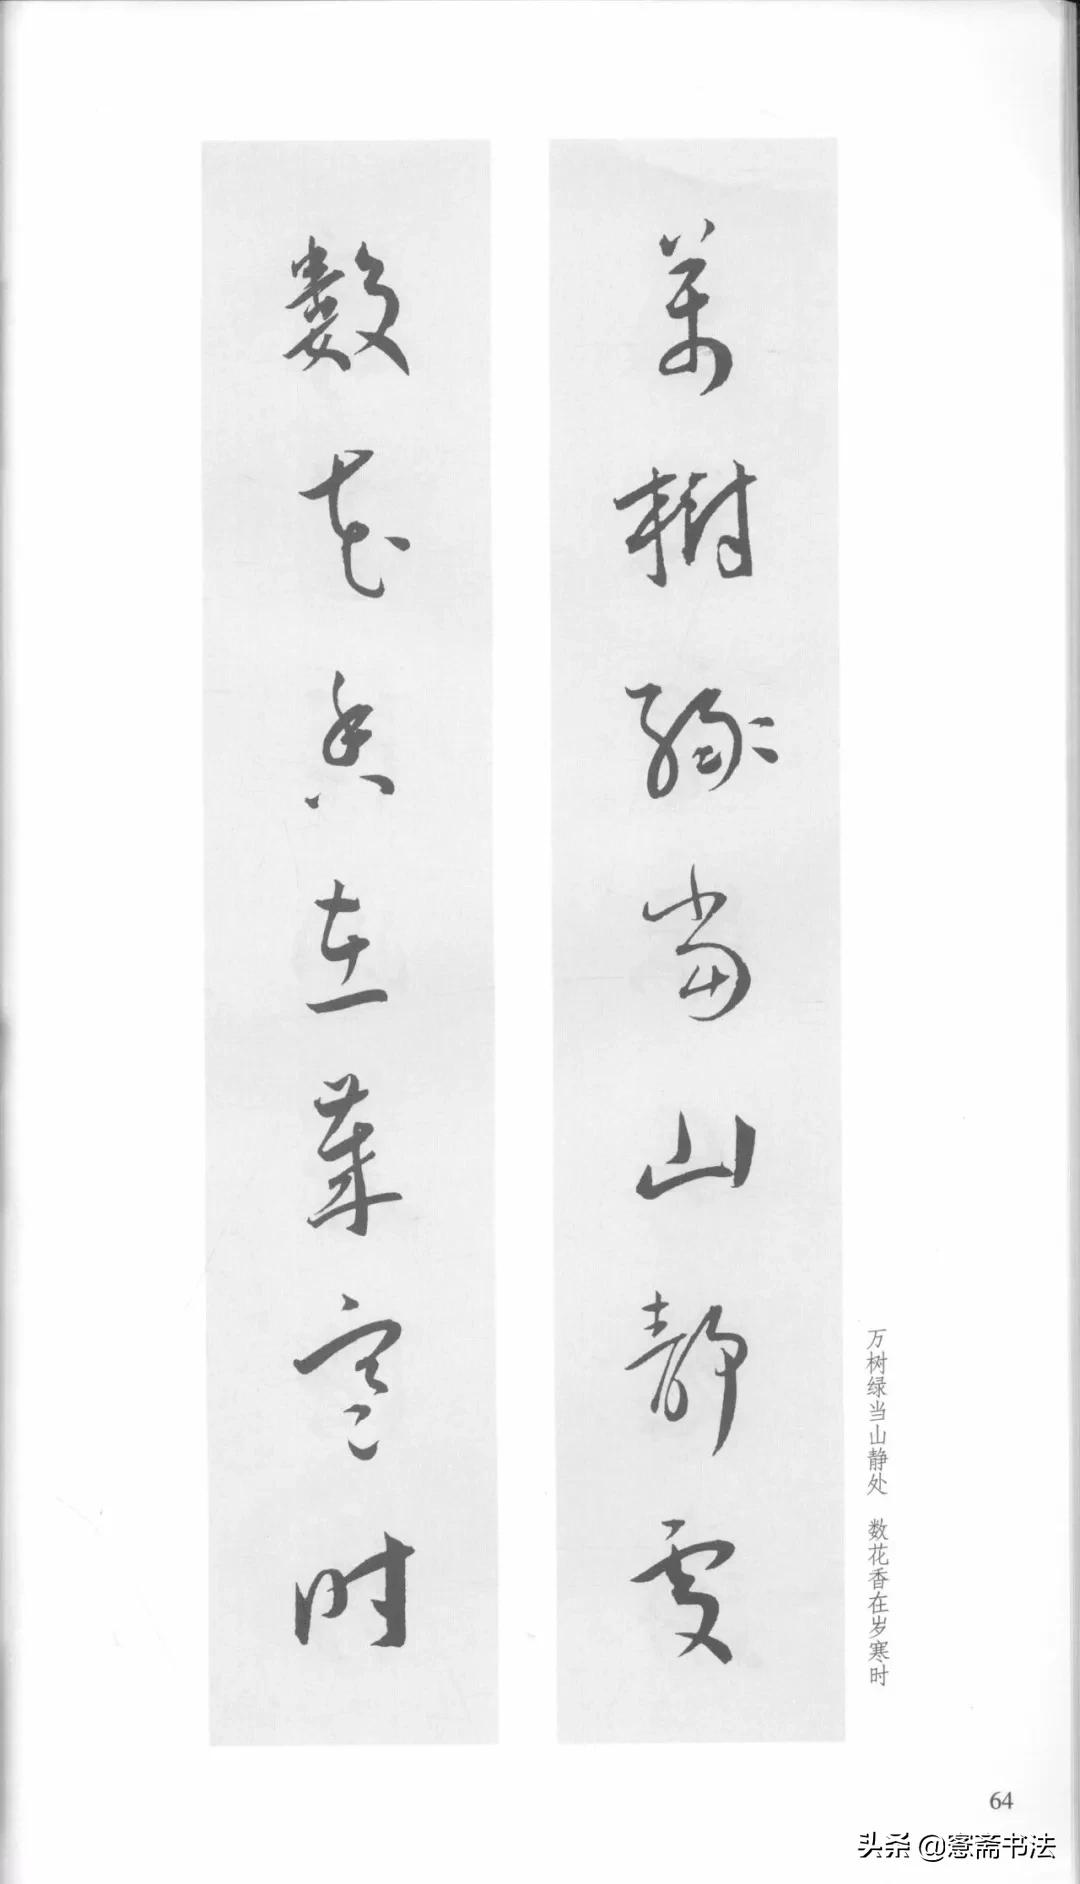 萬樹綠當山靜處
數花香在歲寒時
万树绿当山静处 数花香在岁寒时
64
头条@窓斋书法